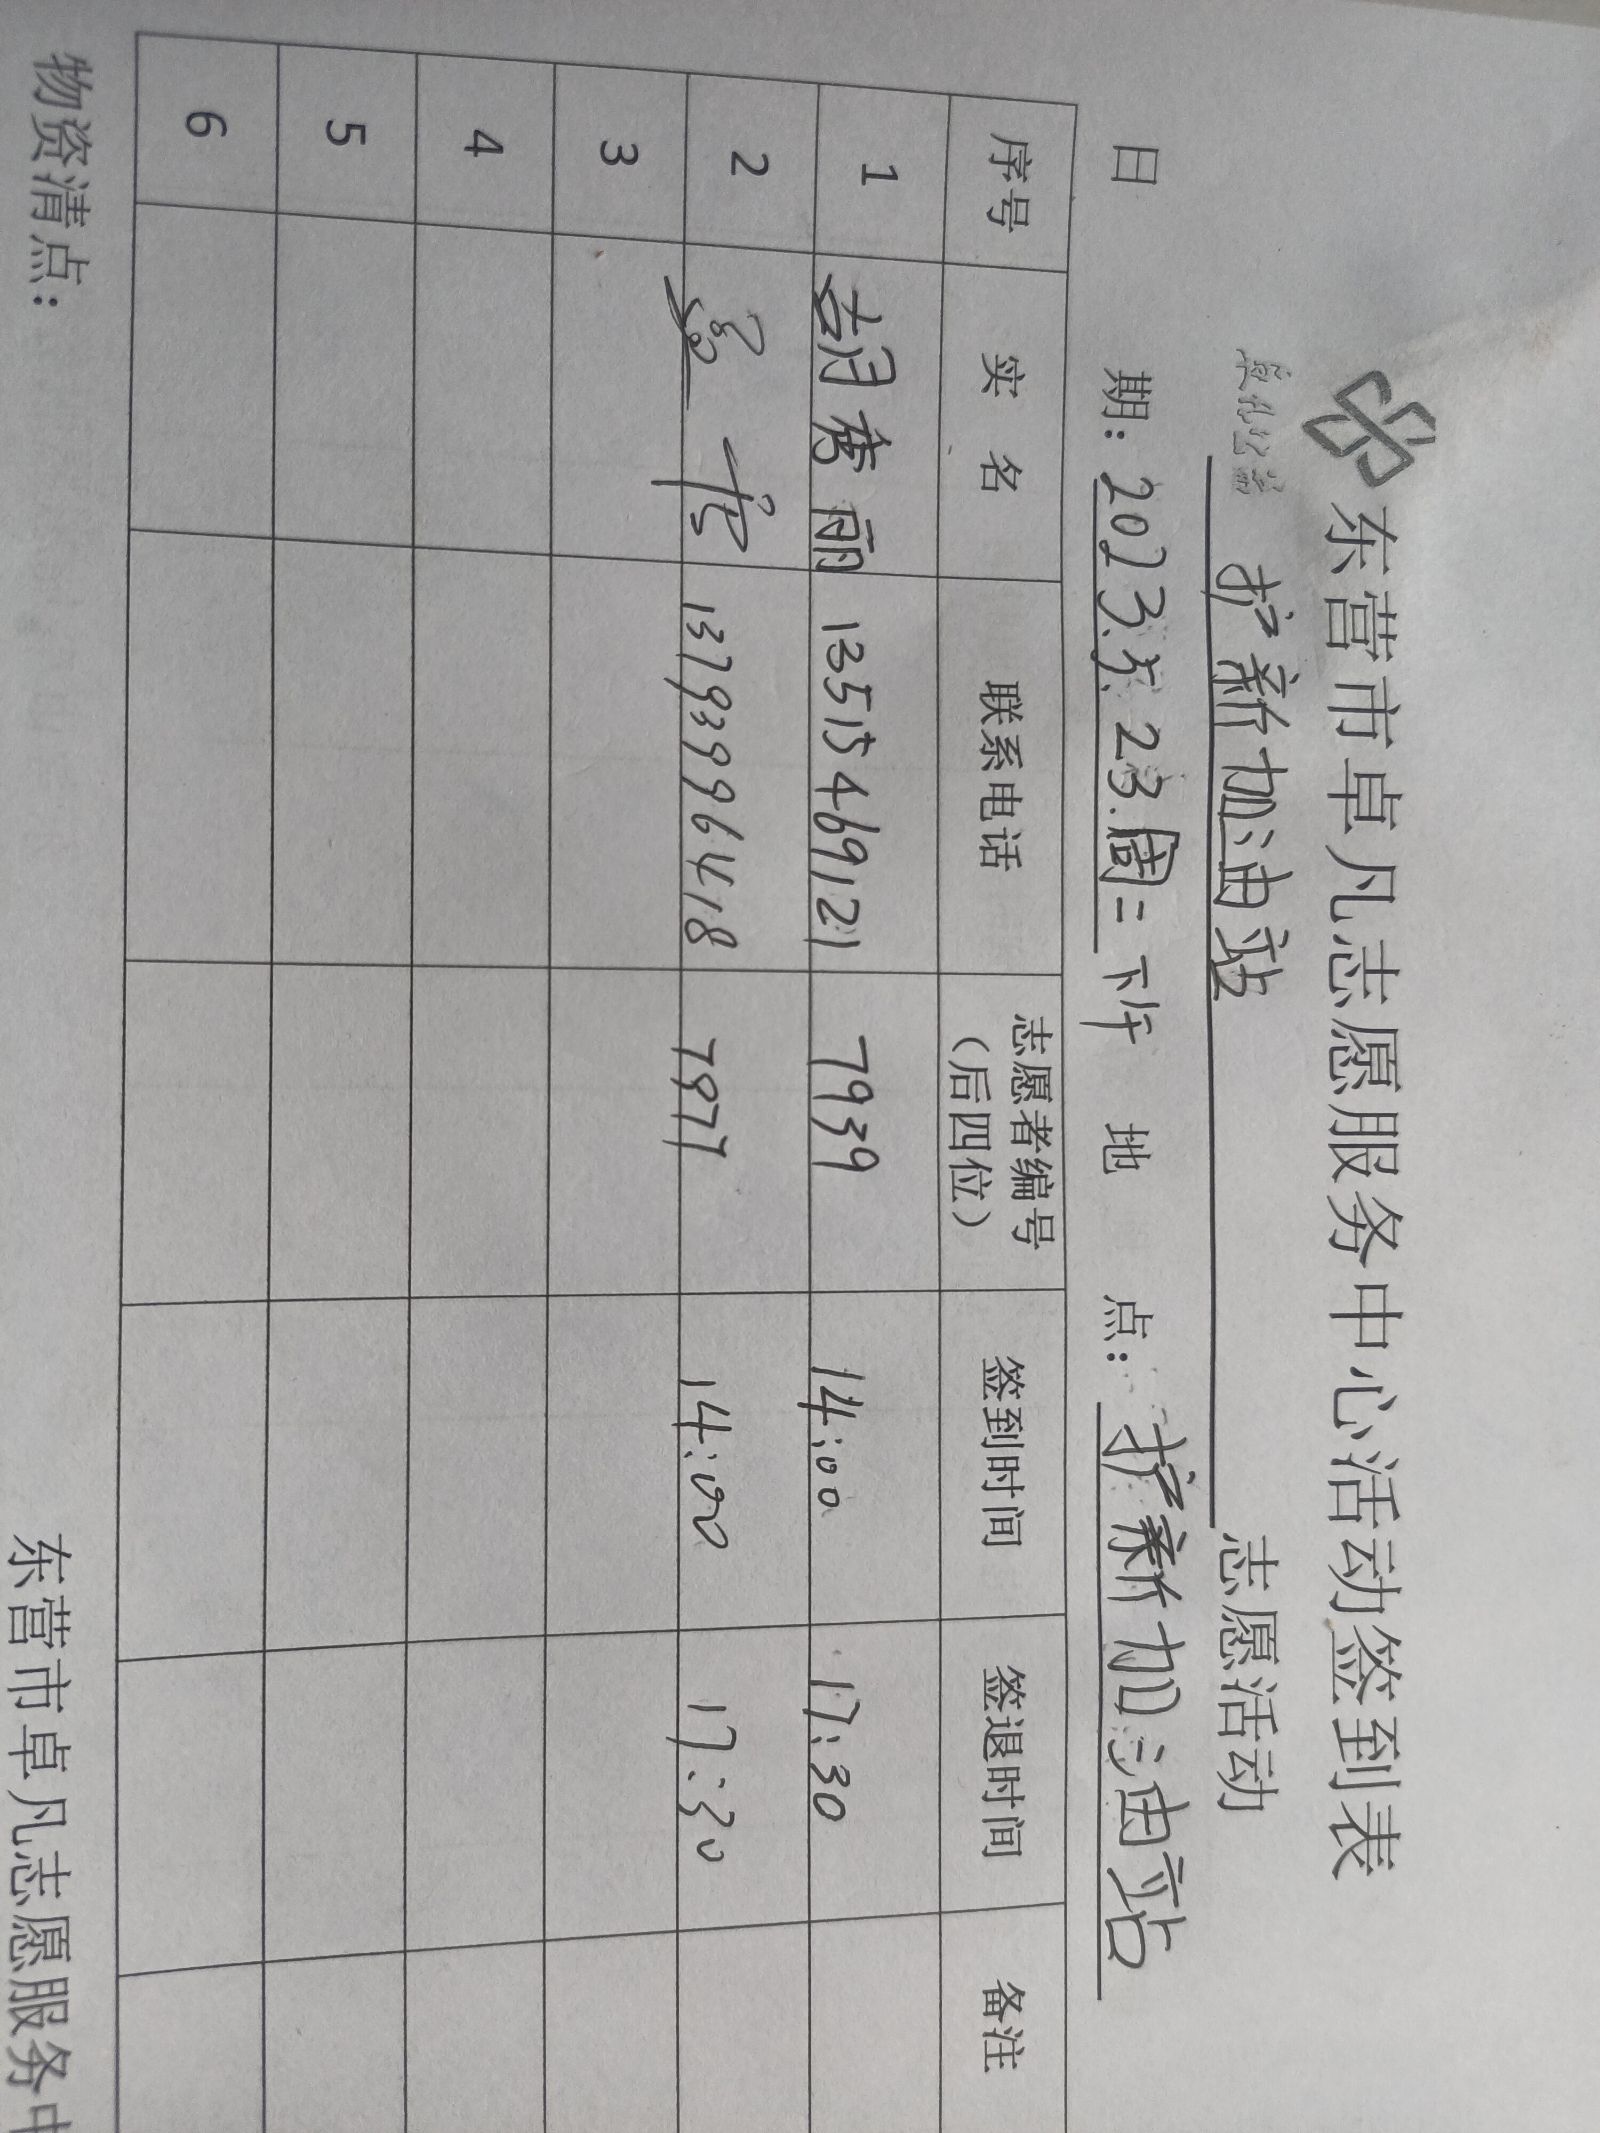 东营市卓凡志愿服务中心活动签到表
护新加油站 志愿活动
日 期: 2023.5.23.周二下午 地 点: 护新加油站
序号 实 名 联系电话 志愿者编号（后四位） 签到时间 签退时间 备注
1 胡秀丽 13515469121 7939 14:00 17:30
2 13793996418 7877 14:00 17:30
3
4
5
6
物资清点:
东营市卓凡志愿服务中